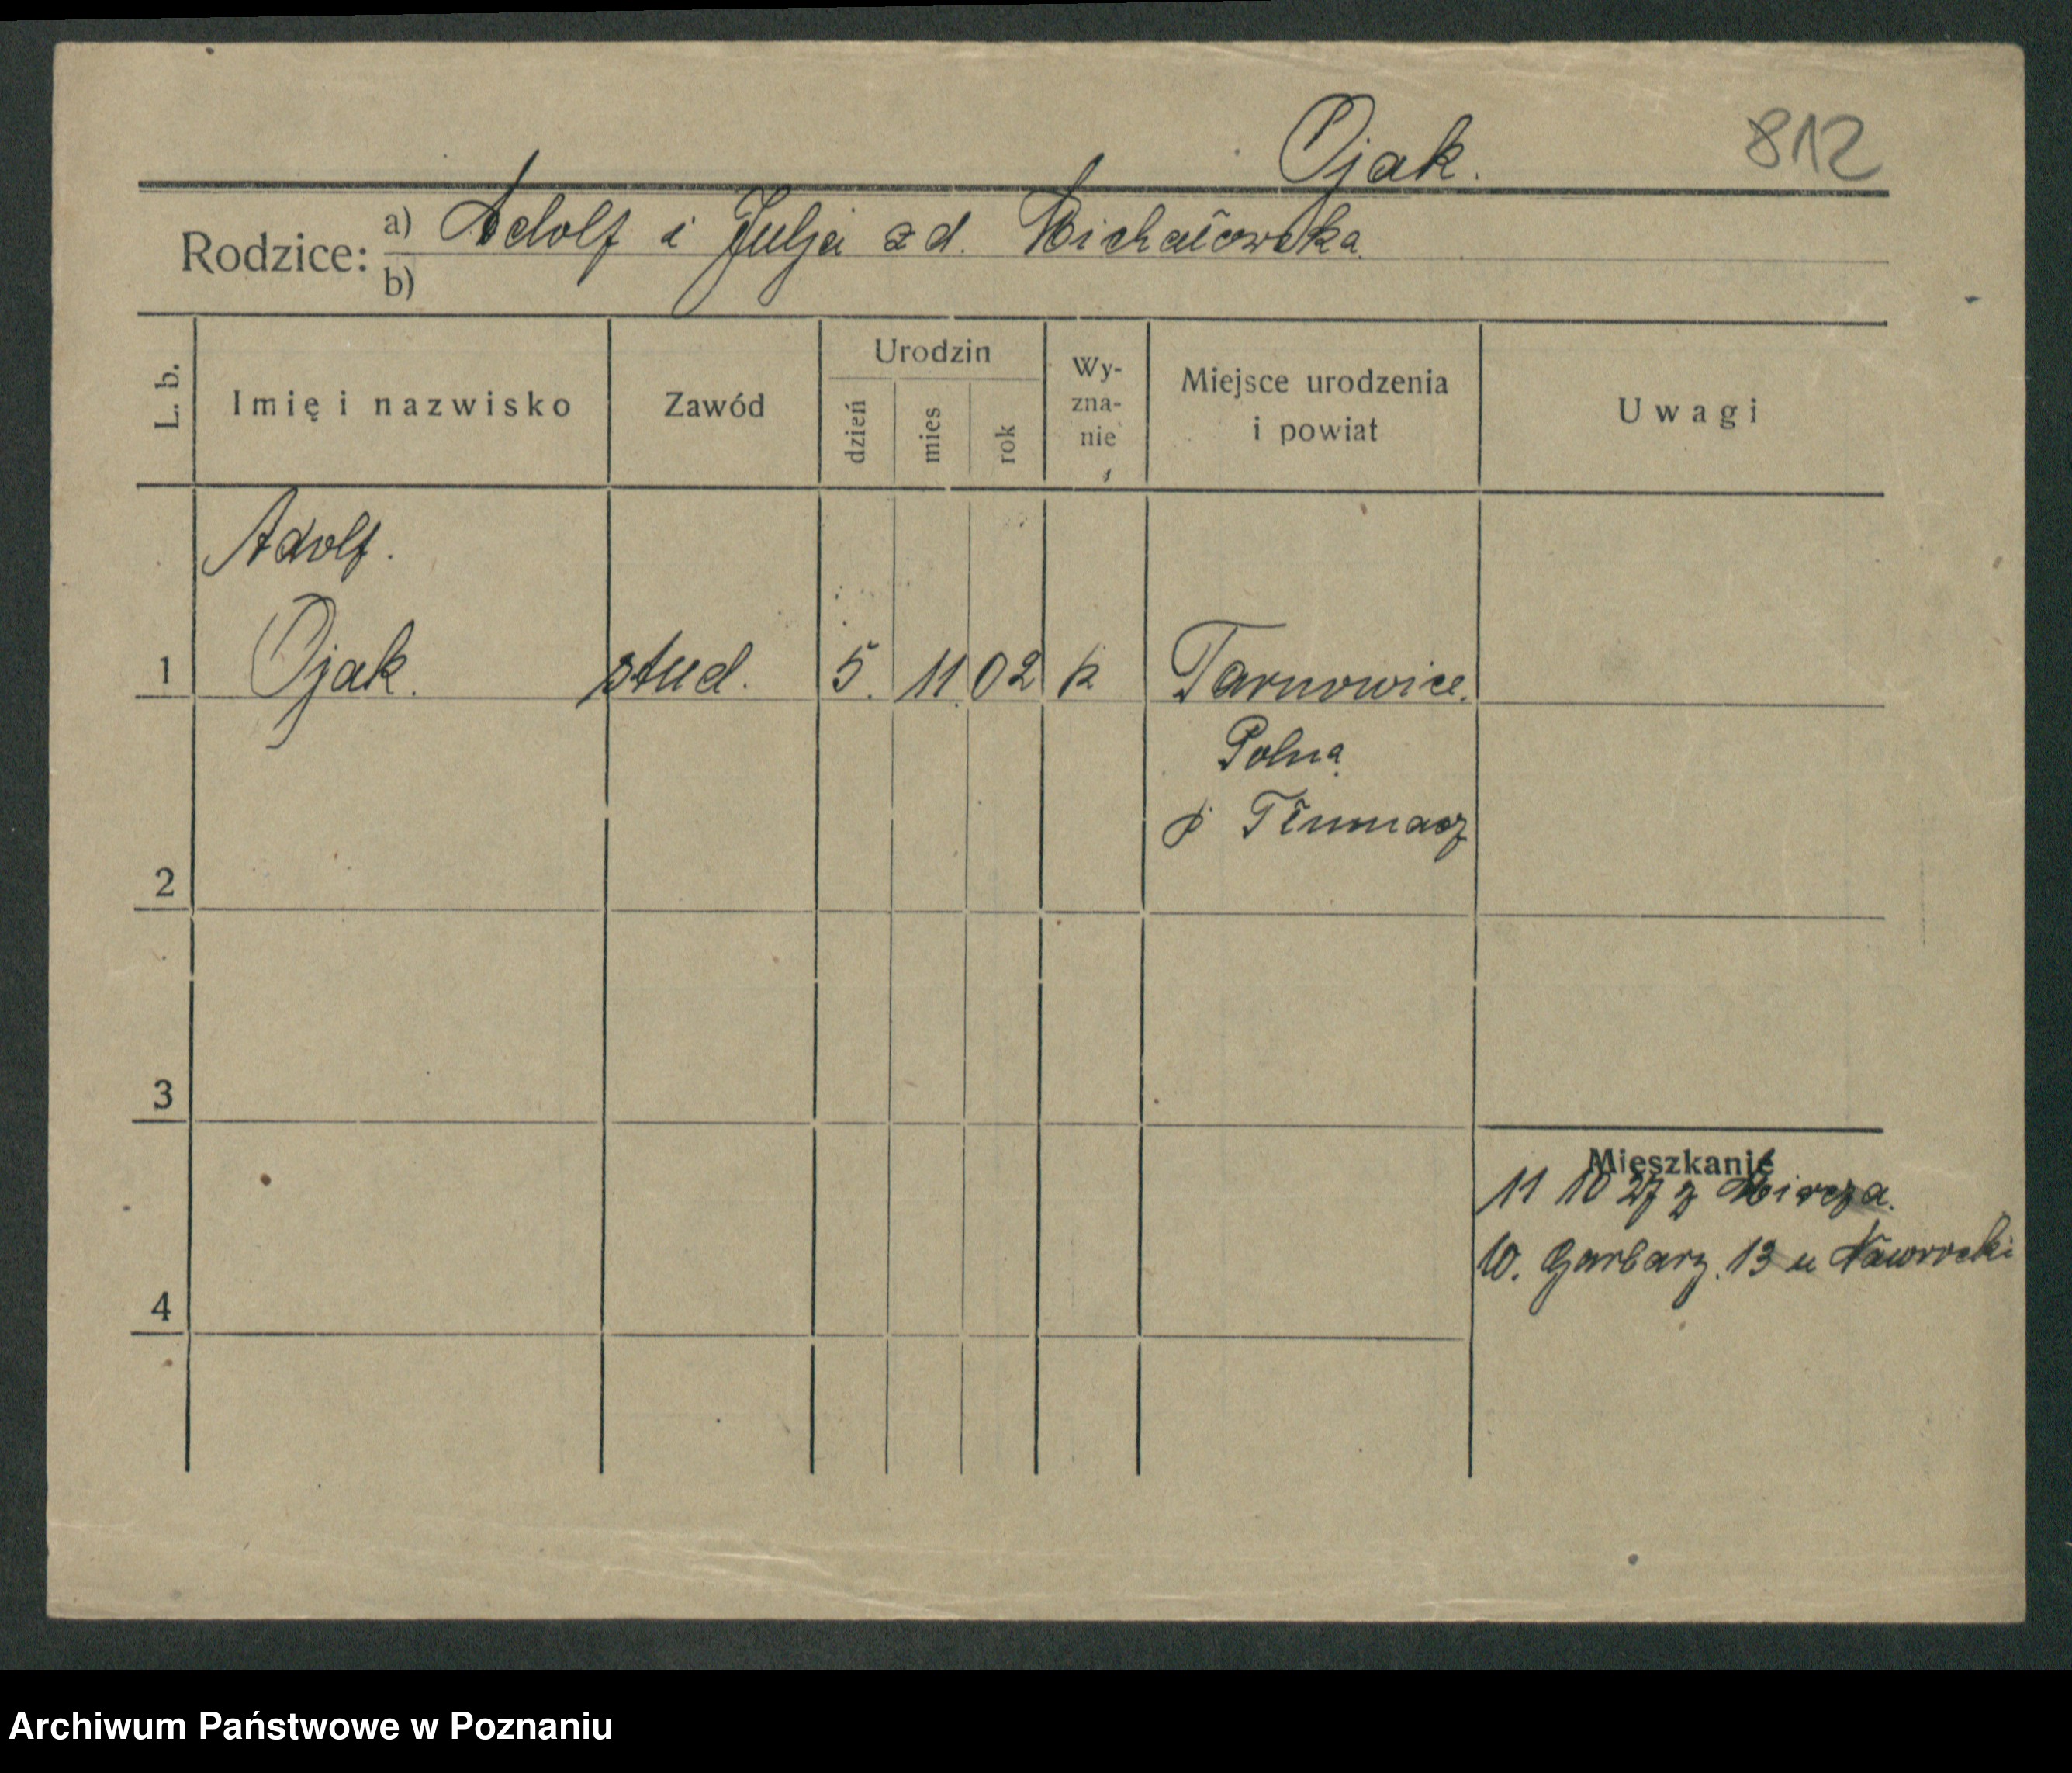 Ojak. 812
Rodzice: a) Adolf i Julja z d. Michałowska
b)
L. b. Imię i nazwisko Zawód Urodzin dzień mies rok Wyznanie Miejsce urodzenia i powiat Uwagi
Adolf.
1 Ojak. stud. 5. 11. 02 k Tarnowice
Polna
p Tłumacz
2
3
Mieszkanie
11 10 27 z
W. Garbarz. 13 u Nawrocki
4
Archiwum Państwowe w Poznaniu